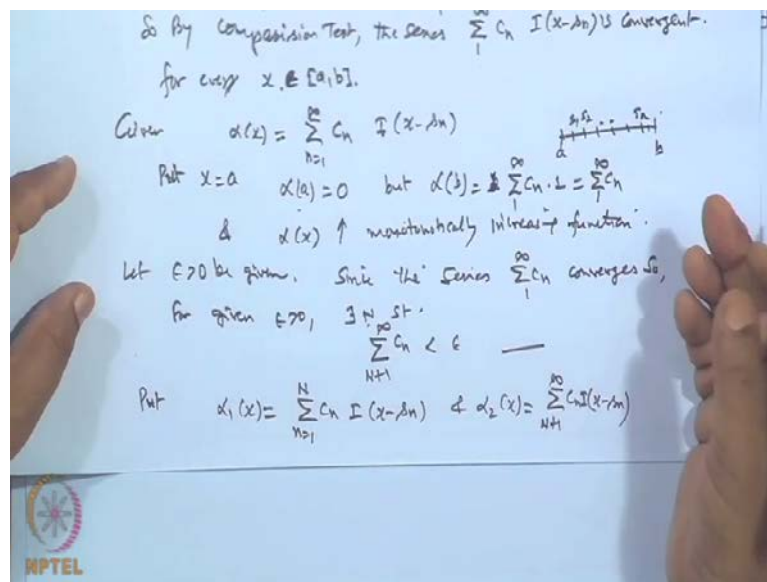 So By Comparision Test, the series ∑_1^∞ Cn I(x-sn) is Convergent.
for every x ∈ [a,b].
Given α(x) = ∑_{n=1}^∞ Cn I(x-sn)
s1 s2 .. sn
a b
Put x=a α(a)=0 but α(b)= ∑_1^∞ Cn·1 = ∑_1^∞ Cn
& α(x) ↑ monotonically increasing function.
Let ε>0 be given. Since the series ∑_1^∞ Cn converges So,
for given ε>0, ∃ N st.
∑_{N+1}^∞ Cn < ε —
Put α1(x) = ∑_{n=1}^N Cn I(x-sn) & α2(x) = ∑_{N+1}^∞ Cn I(x-sn)
NPTEL